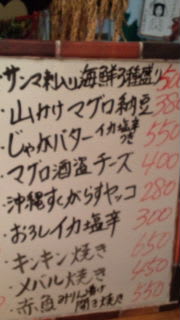 ・サンマ刺入り海鮮3種盛り 500
・山かけマグロ納豆 380
・じゃがバターイカ塩辛つき 550
・マグロ酒盗チーズ 400
・沖縄すくがらすヤッコ 280
・おろしイカ塩辛 300
・キンキン焼き 650
・メバル焼き 450
・赤魚みりん漬け開き焼き 550